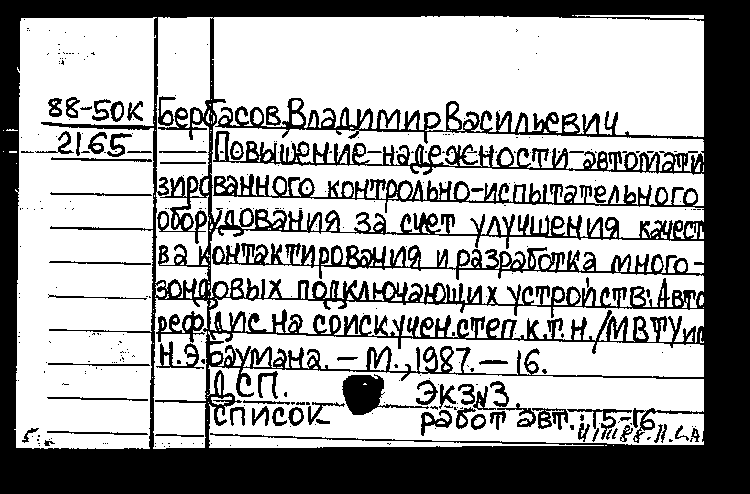 88-50К Бербасов, Владимир Васильевич.
2165 Повышение надежности автомати
зированного контрольно-испытательного
оборудования за счет улучшения качест
ва контактирования и разработка много-
зондовых подключающих устройств: Авто
реф. дис. на соиск. учен. степ. к.т.н. /МВТУ им
Н.Э. Баумана. – М., 1987. – 16.
ДСП. ЭКЗ №3.
список работ авт.: 15-16